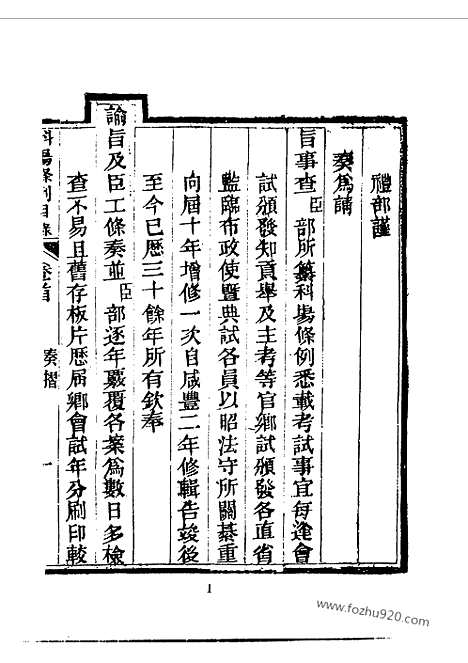 禮部謹
奏爲請
旨事查臣部所纂科場條例悉載考試事宜每逢會
試頒發知貢舉及主考等官鄉試頒發各直省
監臨布政使暨典試各員以昭法守所關綦重
向屆十年增修一次自咸豐二年修輯告竣後
至今已歷三十餘年所有欽奉
諭旨及臣工條奏並臣部逐年覈覆各案爲數日多檢
查不易且舊存板片歷屆鄉會試年分刷印較
科場條例目錄 卷首 奏摺 一
1
www.fozhu920.com